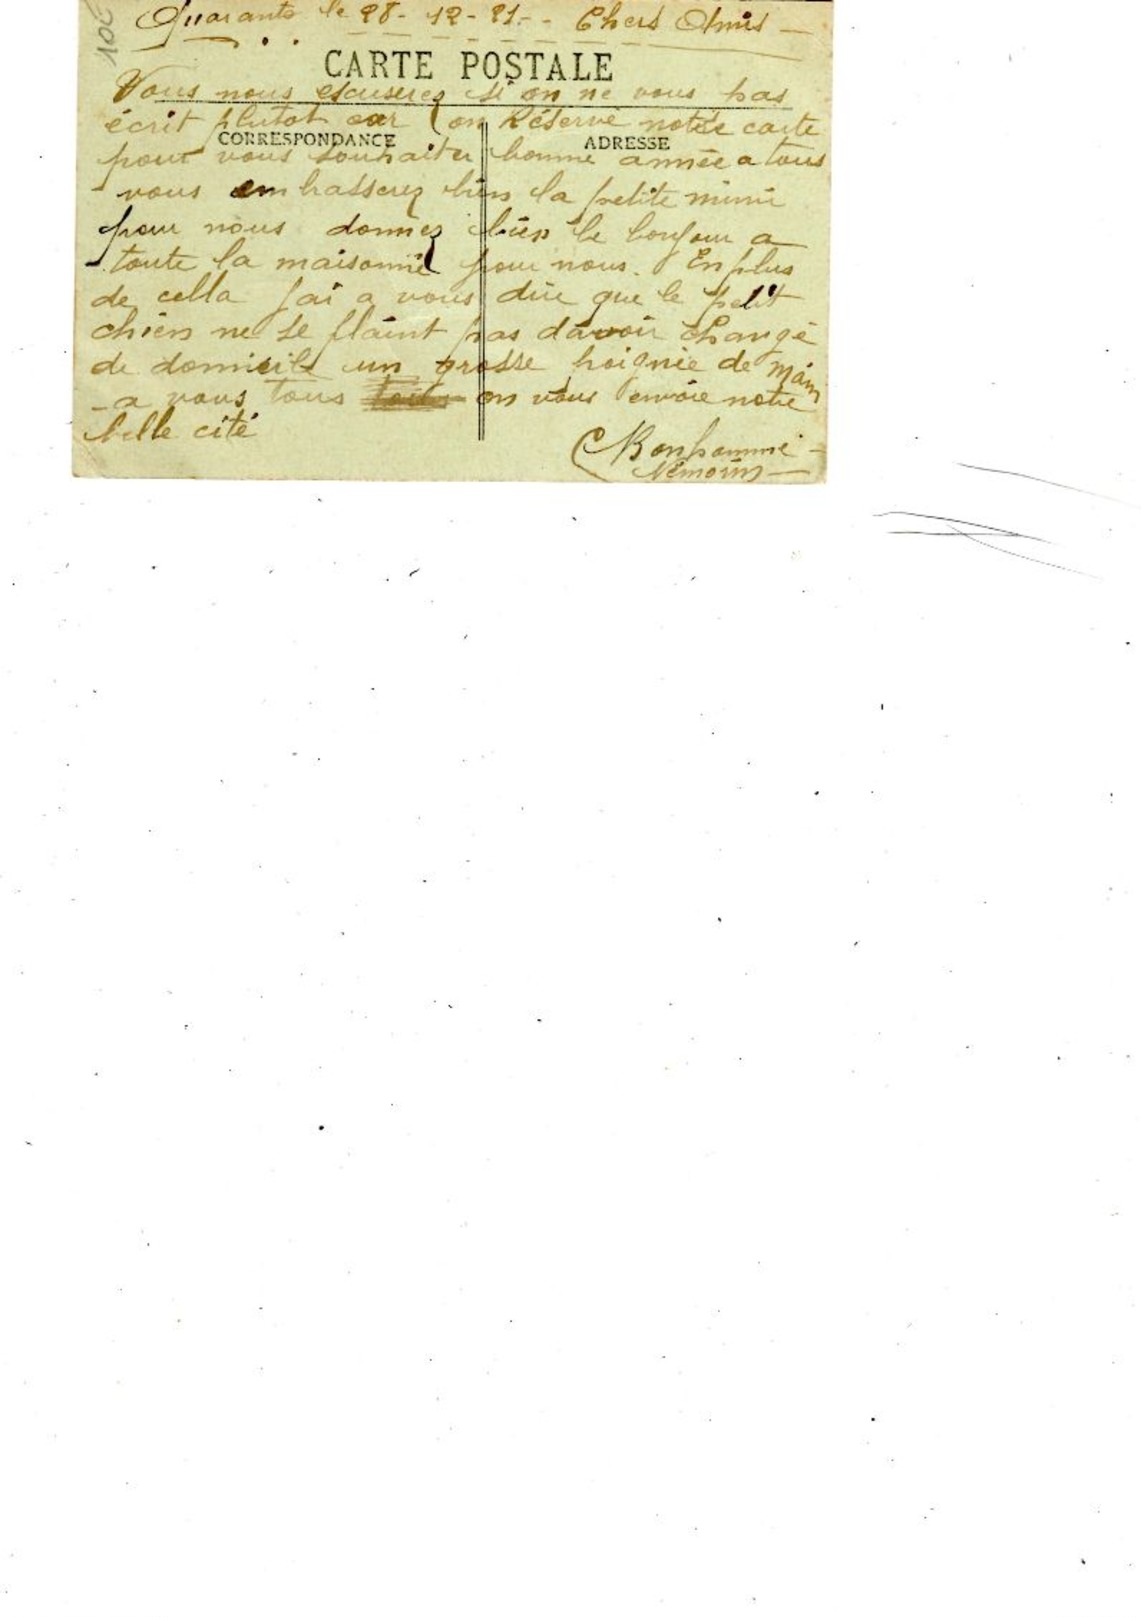 Quarante le 28-12-21- Chers Amis-
CARTE POSTALE
Vous nous escuserez si on ne vous pas
écrit plutot car on Réservé notre carte
CORRESPONDANCE
ADRESSE
pour vous souhaiter bonne année a tous
vous embrasserez bien la petite mimi
pour nous donnez bien le bonjour a
toute la maisonné pour nous. En plus
de cella jai a vous dire que le petit
chien ne se plaint pas davoir changé
de domicile un grosse poignée de main
-a vous tous on vous envoie notre
belle cité
Bonhomme-
Némorin-